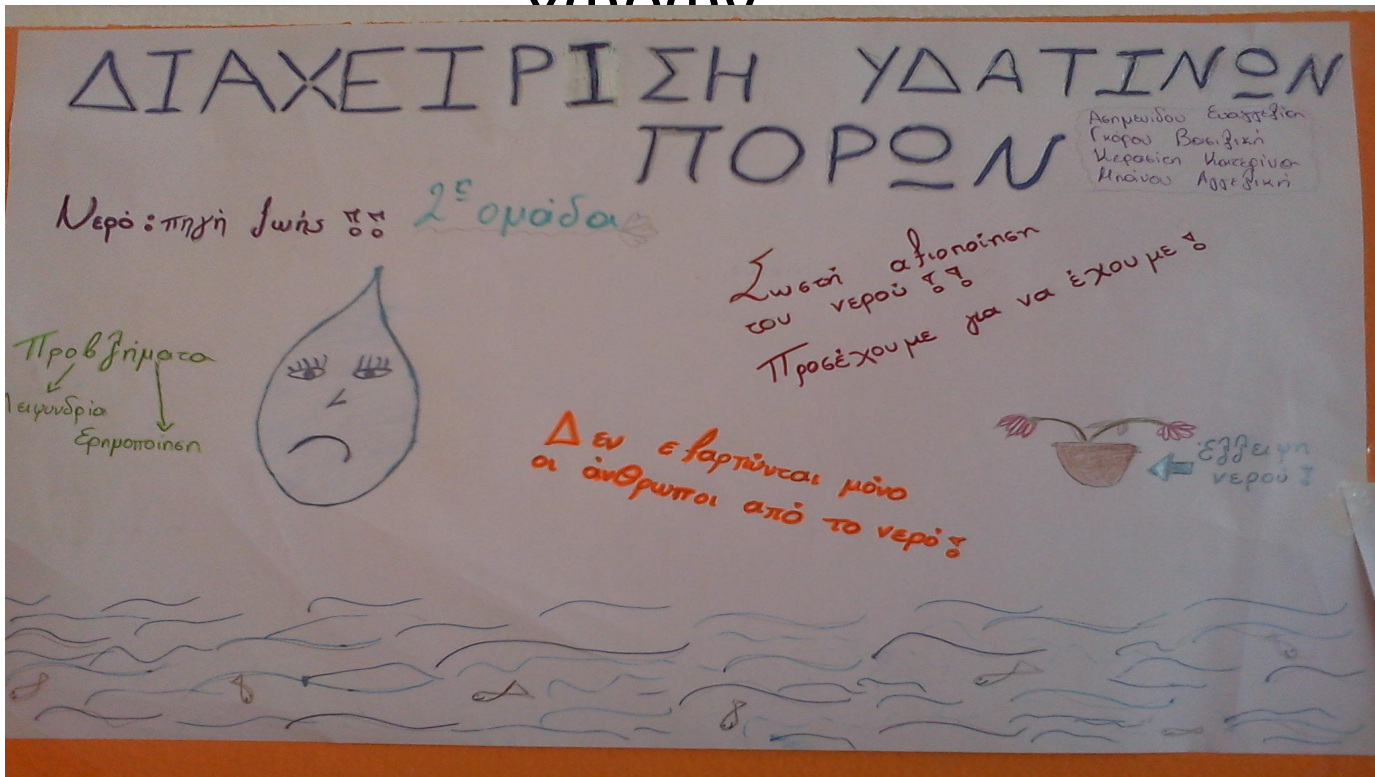 ΔΙΑΧΕΙΡΙΣΗ ΥΔΑΤΙΝΩΝ
ΠΟΡΩΝ
Ασημενιδου Ευαγγελία
Γκόρου Βασιλική
Κερασίση Κατερίνα
Μπάνου Αγγελική
Νερό: πηγή ζωής!!
2ε ομάδα
Σωστή αξιοποίηση
του νερού!!
Προσέχουμε για να έχουμε!
Προβλήματα
λειψυνδρία
Ερημοποίηση
Δεν εξαρτώνται μόνο
οι άνθρωποι από το νερό!
έλλειψη
νερού!